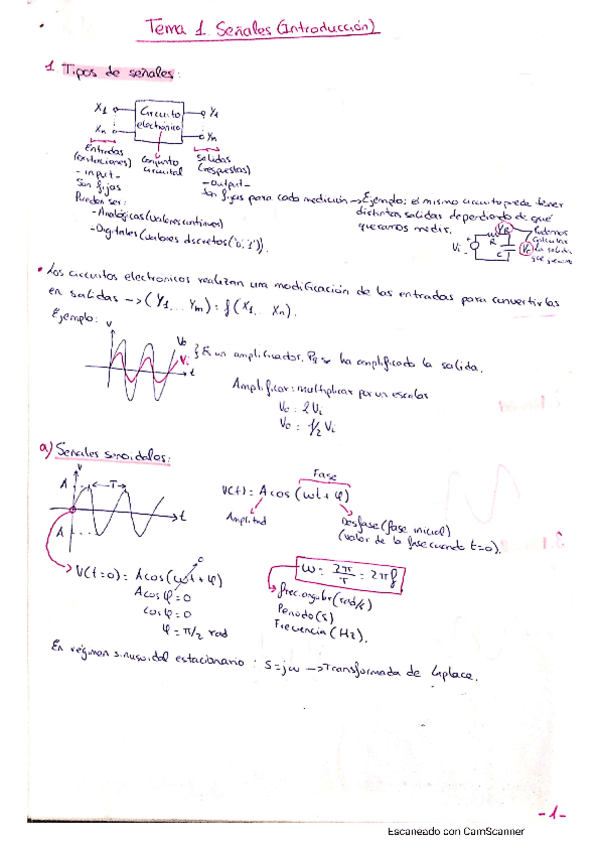 Tema 1. Señales (Introducción)
1 Tipos de señales:
X1 Circuito electrónico Y1
Xn Ym
Entradas (excitaciones) - input - Son fijas
Conjunto circuital
Salidas (respuestas) - output - Son fijas para cada medición → Ejemplo: el mismo circuito puede tener
distintas salidas dependiendo de qué
queramos medir.
Pueden ser:
- Analógicas (valores continuos)
- Digitales (valores discretos ('0', '1')).
Vi R VR C Vc
Podemos calcular la salida que
• Los circuitos electrónicos realizan una modificación de las entradas para convertirlas
en salidas → (Y1... Ym) = f (X1... Xn).
Ejemplo:
V Vo Vi t
Es un amplificador, ha amplificado la salida.
Amplificar: multiplicar por un escalar
Vo = 2Vi
Vo = 1/2 Vi
a) Señales senoidales:
V A T t A
Fase
V(t) = A cos (ωt + φ)
Amplitud
Desfase (fase inicial)
(valor de la fase cuando t=0).
V(t=0) = A cos(ωt + φ) 0
A cos φ = 0
cos φ = 0
φ = π/2 rad
ω = 2π/T = 2πf
frec. angular (rad/s)
Periodo (s)
Frecuencia (Hz).
En régimen sinusoidal estacionario: S = jω → Transformada de Laplace.
-1-
Escaneado con CamScanner